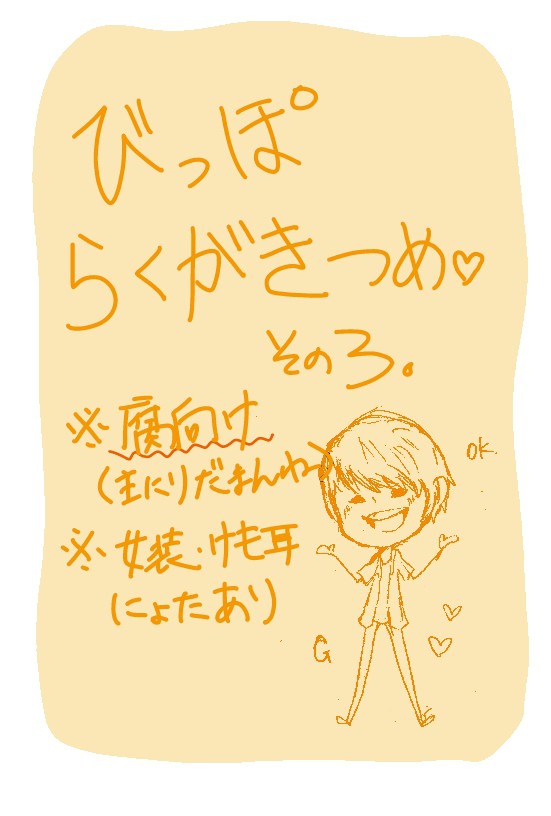 びっぽ
らくがきつめ♡
その3。
※腐向け
(主にりだまんね)
※女装・けも耳
にょたあり)
OK.
G